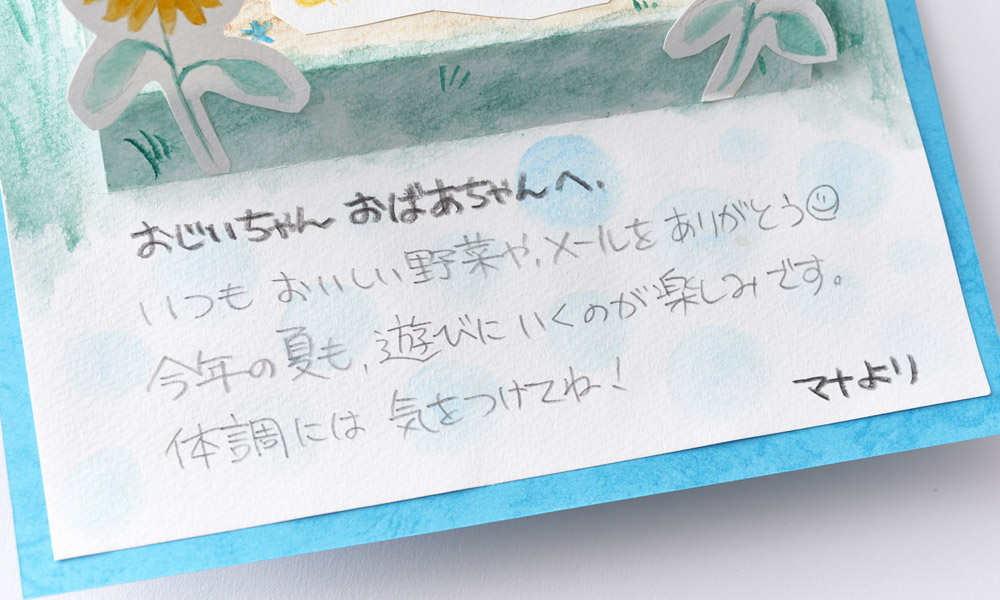 おじいちゃん おばあちゃんへ、
いつも おいしい野菜や、メールを ありがとう☺
今年の夏も、遊びに いくのが 楽しみです。
体調には 気をつけてね！
マナより